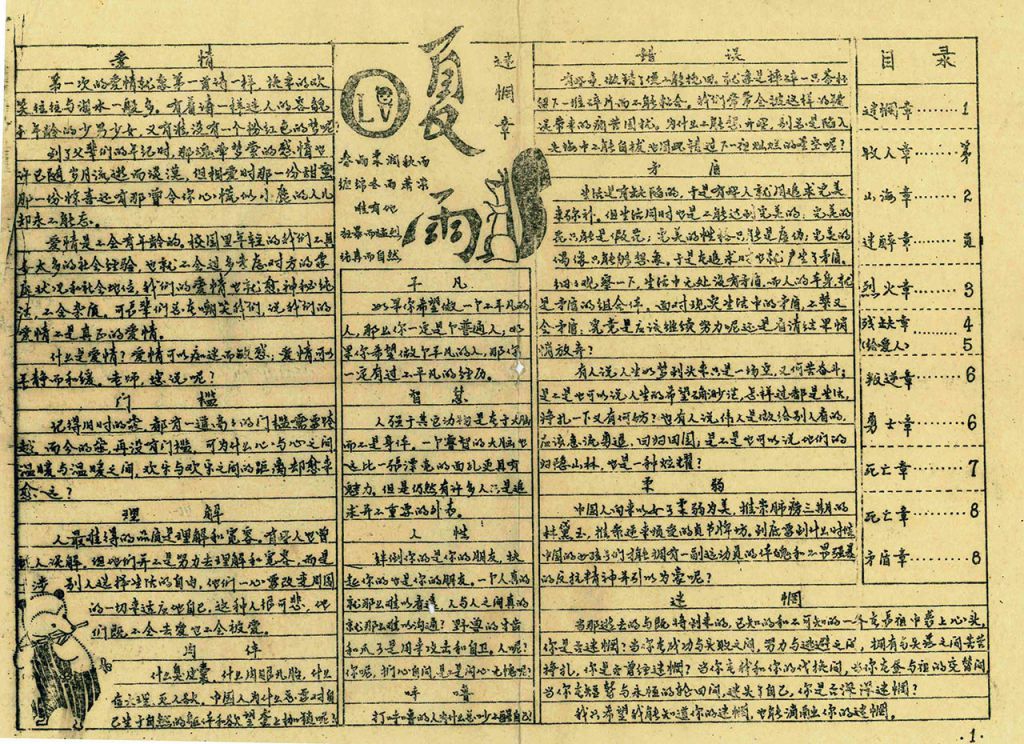 爱情
第一次的爱情就像第一首诗一样，换来的欢
笑往往与泪水一般多。有着诗一样迷人的容貌
年龄的少男少女，又有谁没有一个粉红色的梦呢？
到了父辈们的年纪时，那魂牵梦萦的感情也
许已随岁月流逝而淡漠，但相爱时那一份甜蜜
那一份惊喜还有那曾令你心慌似小鹿的人儿
却永不能忘。
爱情是不会有年龄的，校园里年轻的我们不具
备太多的社会经验，也就不会过多考虑对方的家
庭状况和社会地位，我们的爱情也就愈神秘纯
洁，不会杂质，可长辈们总是嘲笑我们，说我们的
爱情不是真正的爱情。
什么是爱情？爱情可以痴迷而敏感；爱情可以
平静而和缓。老师，您说呢？
门槛
记得旧时的家，都有一道高高的门槛需要跨
越，而今的家，再没有门槛，可为什么心与心之间
温暖与温暖之间，欢乐与欢乐之间的距离却愈来
愈远？
理解
人最难得的品质是理解和宽容，有些人也曾
别人误解，但他们并不是努力去理解和宽容，而是
干涉别人选择生活的自由，他们一心要改变周围
的一切来适应他自己，这种人很可悲，他
们既不会去爱也不会被爱。
肉体
什么臭皮囊，什么肉眼凡胎，什么
存天理，灭人欲，中国人为什么总要对自
己生于自然的躯体和欲望套上枷锁呢？
LV
夏雨
迷惘章
春雨柔润秋雨
缠绵冬雨萧索
唯有他
狂暴而猛烈
纯真而自然
平凡
如果你希望做一个不平凡的
人，那么你一定是个普通人，如
果你希望做个平凡的人，那你
一定有过不平凡的经历。
智慧
人强于其它动物是在于大脑
而不是身体，一个睿智的大脑也
远比一张漂亮的面孔更具有
魅力。但是仍然有许多人只是追
求并不重要的外表。
人性
绊倒你的是你的朋友，扶
起你的也是你的朋友。一个人真的
就那么难以看透，人与人之间真的
就那么难以沟通？野兽的牙齿
和爪子是用来攻击和自卫，人呢？
你呢，扪心自问，是不是问心无愧呢？
呼噜
打呼噜的人为什么总吵不醒自己？
错误
有些真，做错了便不能挽回，就像是摔碎一只茶杯
留下一堆碎片而不能粘合。我们常常会被这样的错
误带来的痛苦困扰。为什么不能想开些，别总是陷入
矛盾
生活是有缺陷的，于是有些人就用追求完美
来弥补。但生活同时也是不能达到完美的：完美的
花只能是假花；完美的性格只能是虚伪；完美的
偶像只能够想象。于是在追求时也就产生了矛盾。
细细观察一下，生活中无处没有矛盾，而人的本身就
是矛盾的组合体。面对现实生活中的矛盾，不禁又
会矛盾：究竟是应该继续努力呢还是看清结果悄
悄放弃？
有人说人生的梦到头来只是一场空，又何苦奋斗；
是不是也可以说人生的希望确渺茫，怎样过都是生活，
挣扎一下又有何妨？也有人说伟人是做给别人看的，
应该急流勇退，回归田园，是不是也可以说他们的
归隐山林，也是一种炫耀？
柔弱
中国人向来以女子柔弱为美，推崇肺痨三期的
林黛玉，推崇逆来顺受的贞节牌坊。到底要到什么时候
中国的女孩子们才能拥有一副运动员的体魄和不畏强暴
的反抗精神并引以为容呢？
迷惘
当那逝去的与既将到来的，已知的和不可知的一个个克勇担中薄上心头，
你是否迷惘？当你在成功与失败之间，努力与逃避之间，拥有与失落之间苦苦
挣扎，你是否曾经迷惘？当你在我和你的代换间，当你在参与祖的交替间
当你在短暂与永恒的轮回间，迷失了自己，你是否深深迷惘？
我只希望我能知道你的迷惘，也能滴融你的迷惘。
目录
迷惘章……1
牧人章……第
山海章……2
迷醉章……页
烈火章……3
残缺章……4
(给爱人) 5
叛逆章……6
勇士章……6
死亡章……7
死亡章……8
矛盾章……8
·1·